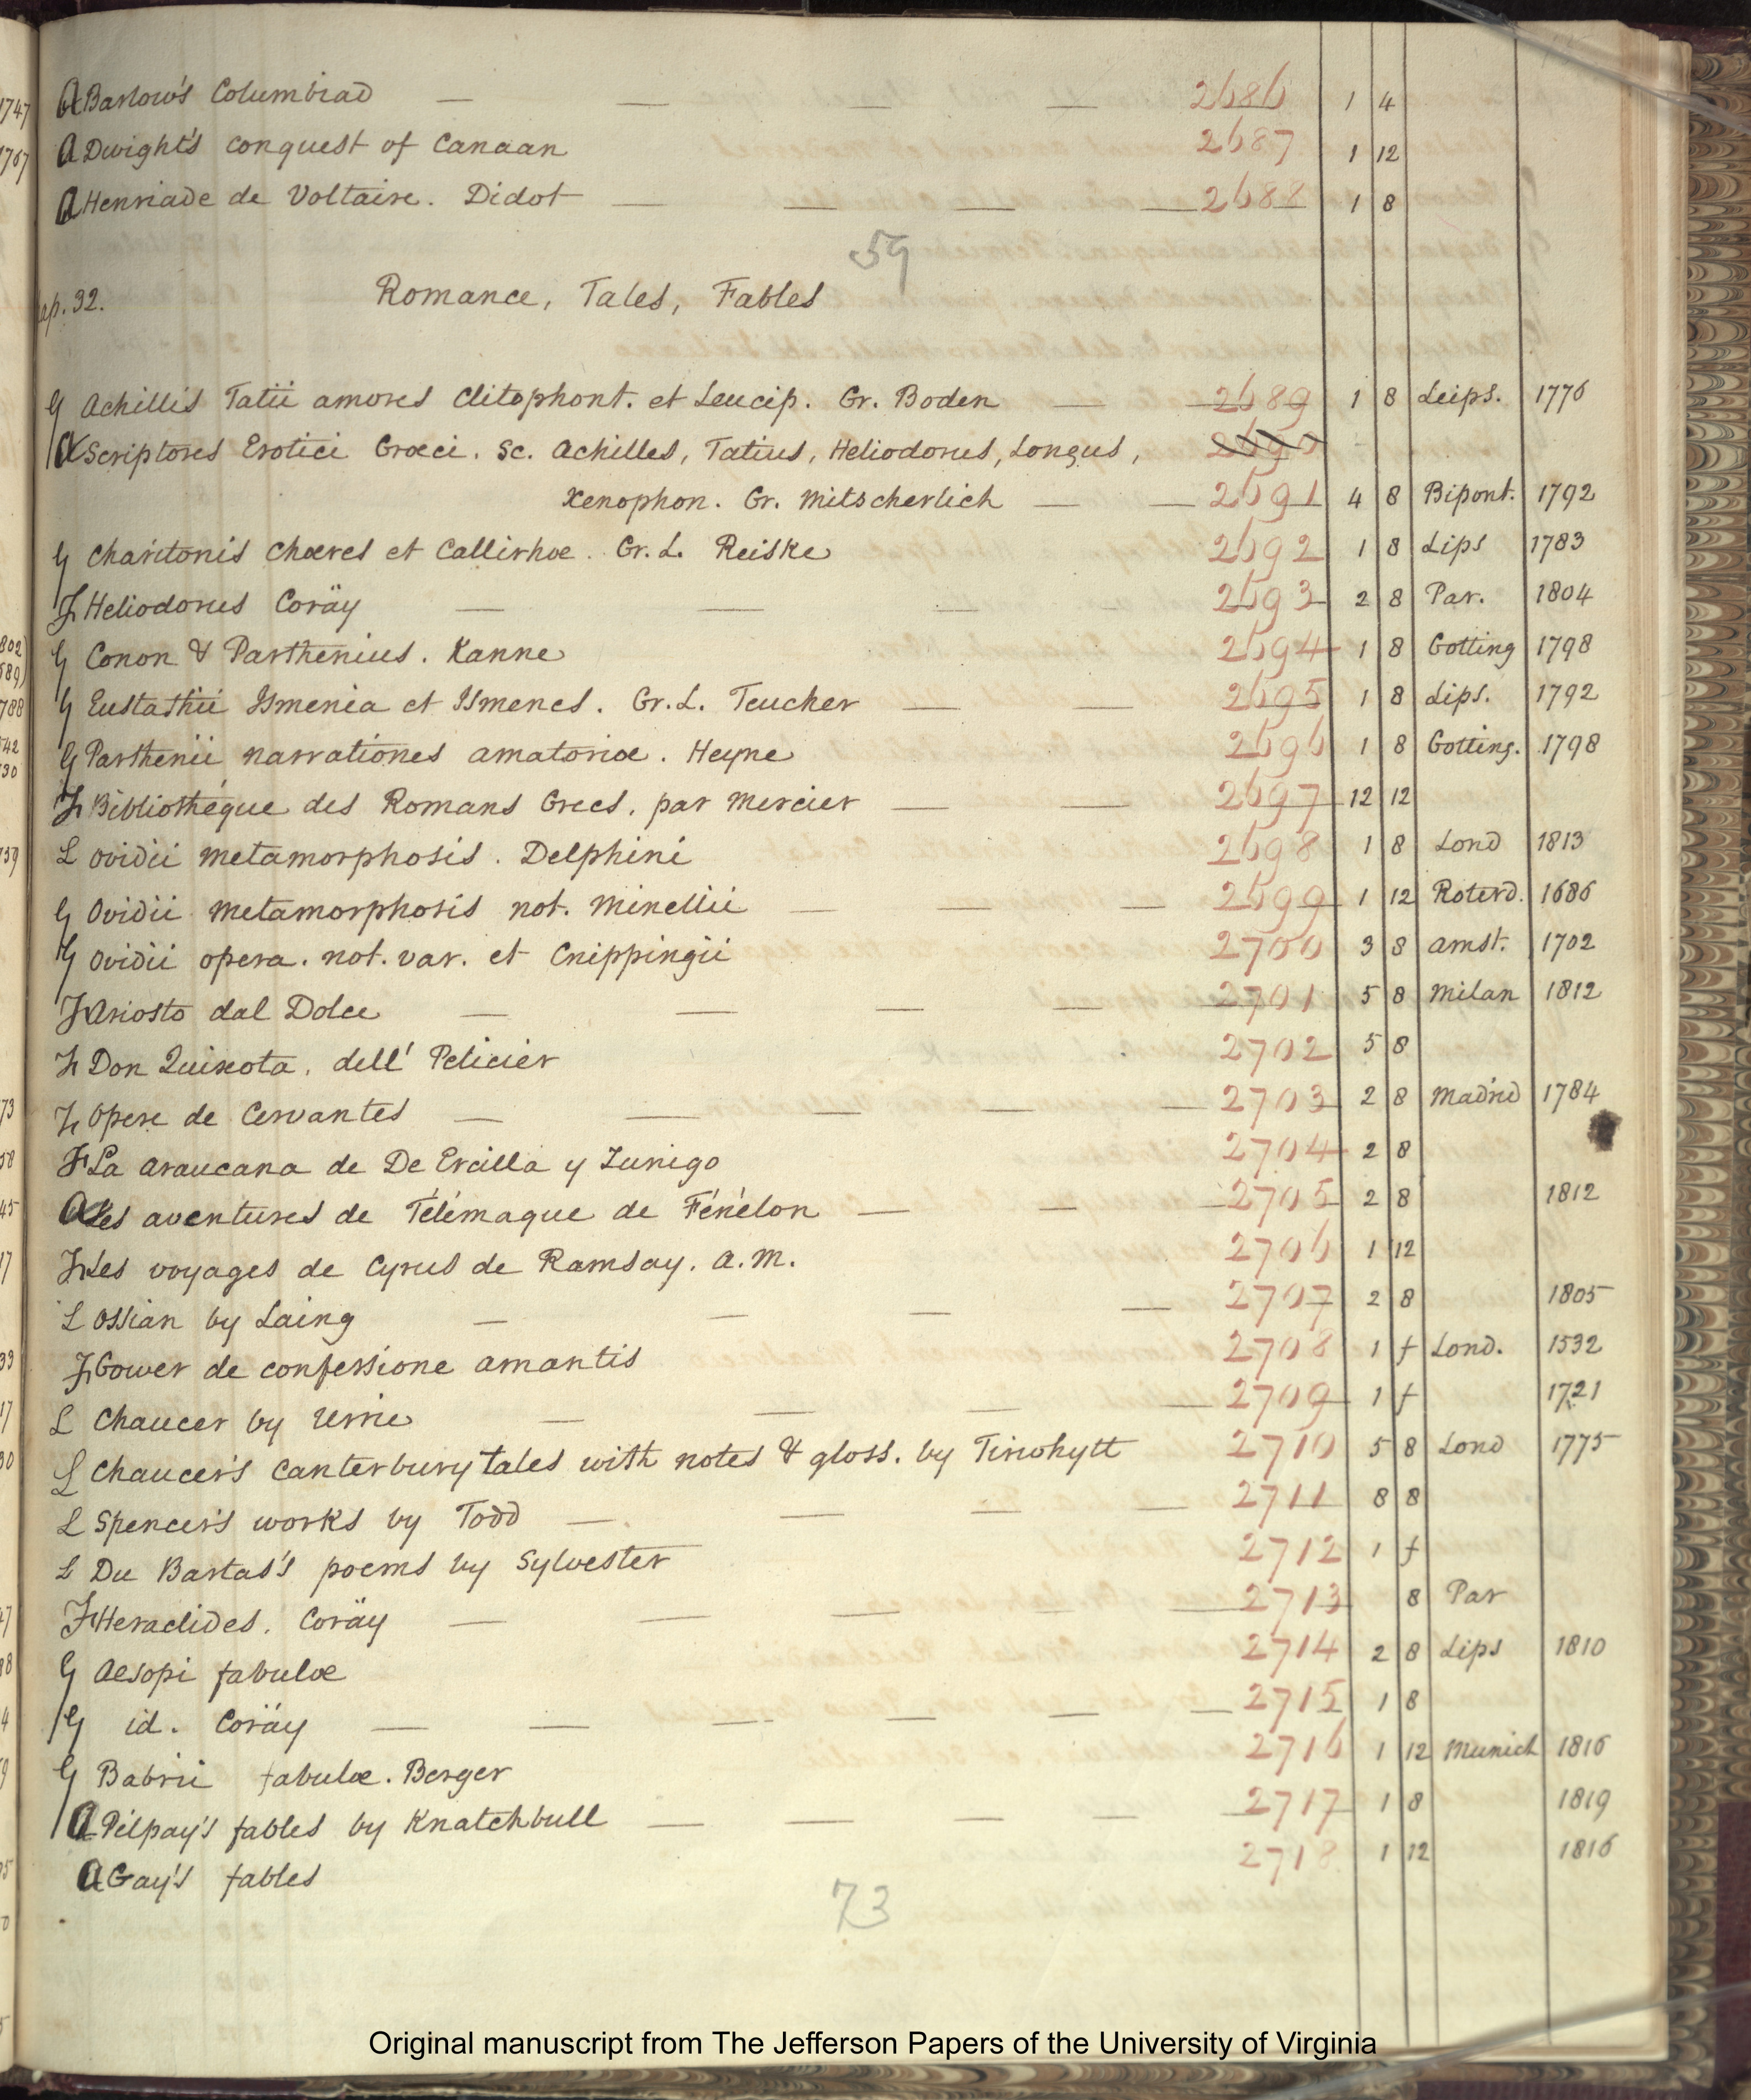 A Barlow's Columbiad — — — — 2686 1 4
A Dwight's conquest of Canaan 2687 1 12
A Henriade de Voltaire. Didot — — — — 2688 1 8
59
ap. 32. Romance, Tales, Fables
G Achillis Tatii amores Clitophont. et Leucip. Gr. Boden — — 2689 1 8 Leips. 1776
A Scriptores Erotici Græci. Sc. Achilles, Tatius, Heliodorus, Longus, 2690
Xenophon. Gr. Mitscherlich — — 2691 4 8 Bipont. 1792
G Charitonis Chæres et Callirhoe. Gr. L. Reiske 2692 1 8 Lips 1783
F Heliodorus Coräy — — — — 2693 2 8 Par. 1804
G Conon & Parthenius. Kanne 2694 1 8 Gotting 1798
G Eustathii Ismenia et Ismenes. Gr. L. Teucher — — 2695 1 8 Lips. 1792
G Parthenii narrationes amatoriæ. Heyne 2696 1 8 Gotting. 1798
F Bibliothéque des Romans Grecs. par Mercier — — 2697 12 12
L Ovidii metamorphosis. Delphini 2698 1 8 Lond 1813
G Ovidii metamorphosis not. Minellii — — — 2699 1 12 Roterd. 1686
G Ovidii opera. not. var. et Cnippingii 2700 3 8 Amst. 1702
F Ariosto dal Dolce — — — — 2701 5 8 Milan 1812
F Don Quixota. dell' Pelicier 2702 5 8
F Opere de Cervantes — — — — — 2703 2 8 Madrid 1784
F La Araucana de De Ercilla y Zunigo 2704 2 8
A Les aventures de Télémaque de Fénélon — — — 2705 2 8 1812
F Les voyages de Cyrus de Ramsay. A.M. 2706 1 12
L Ossian by Laing — — — — 2707 2 8 1805
F Gower de confessione amantis 2708 1 f Lond. 1532
L Chaucer by Urrie — — — — 2709 1 f 1721
L Chaucer's Canterbury tales with notes & gloss. by Tirwhytt 2710 5 8 Lond 1775
L Spencer's works by Todd — — — — 2711 8 8
L Du Bartas's poems by Sylvester 2712 1 f
F Heraclides. Coräy — — — — — 2713 8 Par
G Aesopi fabulæ 2714 2 8 Lips 1810
G id. Coräy — — — — — — 2715 1 8
G Babrii fabulæ. Berger 2716 1 12 Munich 1816
A Pilpay's fables by Knatchbull — — — — — 2717 1 8 1819
A Gay's fables 2718 1 12 1816
73
Original manuscript from The Jefferson Papers of the University of Virginia